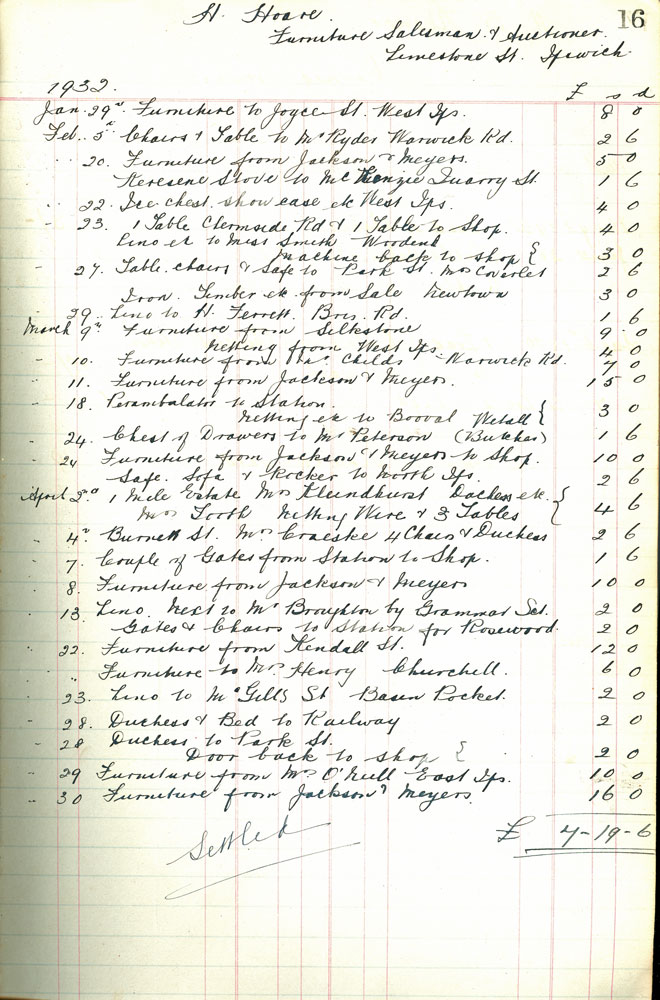 16
H. Hoare.
Furniture Salesman & Auctioner.
Limestone St. Ipswich.
1932. £ s d
Jan. 29th Furniture to Joyce St. West Ips. 8 0
Feb. 5th Chairs & Table to Mr Ryder Warwick Rd. 2 6
" 20. Furniture from Jackson & Meyers. 5 0
Keresene Stove to McKenzie Quarry St. 1 6
" 22. Ice chest. show case etc West Ips. 4 0
" 23. 1 Table Chermside Rd & 1 Table to Shop. 4 0
Lino etc to Miss Smith Woodend
Machine back to shop { 3 0
" 27. Table. chairs & Safe to Park St. Mrs Coverlet 2 6
Iron. Timber etc. from Sale Newtown 3 0
" 29. Lino to H. Ferrett. Bris. Rd. 1 6
March 9th Furniture from Silkstone 9 0
Netting from West Ips. 4 0
" 10. Furniture from Childs Warwick Rd. 7 0
" 11. Furniture from Jackson & Meyers. 15 0
" 18. Perambulator to Station.
Netting etc to Booval {
3 0
" 24. Chest of Drawers to Mr Peterson (Butcher) 1 6
" 24 Furniture from Jackson & Meyers to Shop. 10 0
Safe. Sofa & Rocker to North Ips. 2 6
April 2nd 1 Mile Estate Mrs Kleindhurst Duchess etc. }
Mrs Tooth Netting Wire & 3 Tables 4 6
" 4th Burnett St. Mrs 4 Chairs & Duchess 2 6
" 7. Couple of Gates from Station to Shop. 1 6
" 8. Furniture from Jackson & Meyers 10 0
" 13. Lino. Next to Mr Broughton by Grammar Scl. 2 0
Gates & Chairs to Station for Rosewood. 2 0
" 22. Furniture from Kendall St. 12 0
" Furniture to Mrs Henry Churchill. 6 0
" 23. Lino to McGills St Basin Pocket. 2 0
" 28. Duchess & Bed to Railway 2 0
" 28 Duchess to Park St.
Door back to shop { 2 0
" 29 Furniture from Mrs O'Neill East Ips. 10 0
" 30 Furniture from Jackson & Meyers. 16 0
£ 7-19-6
Settled